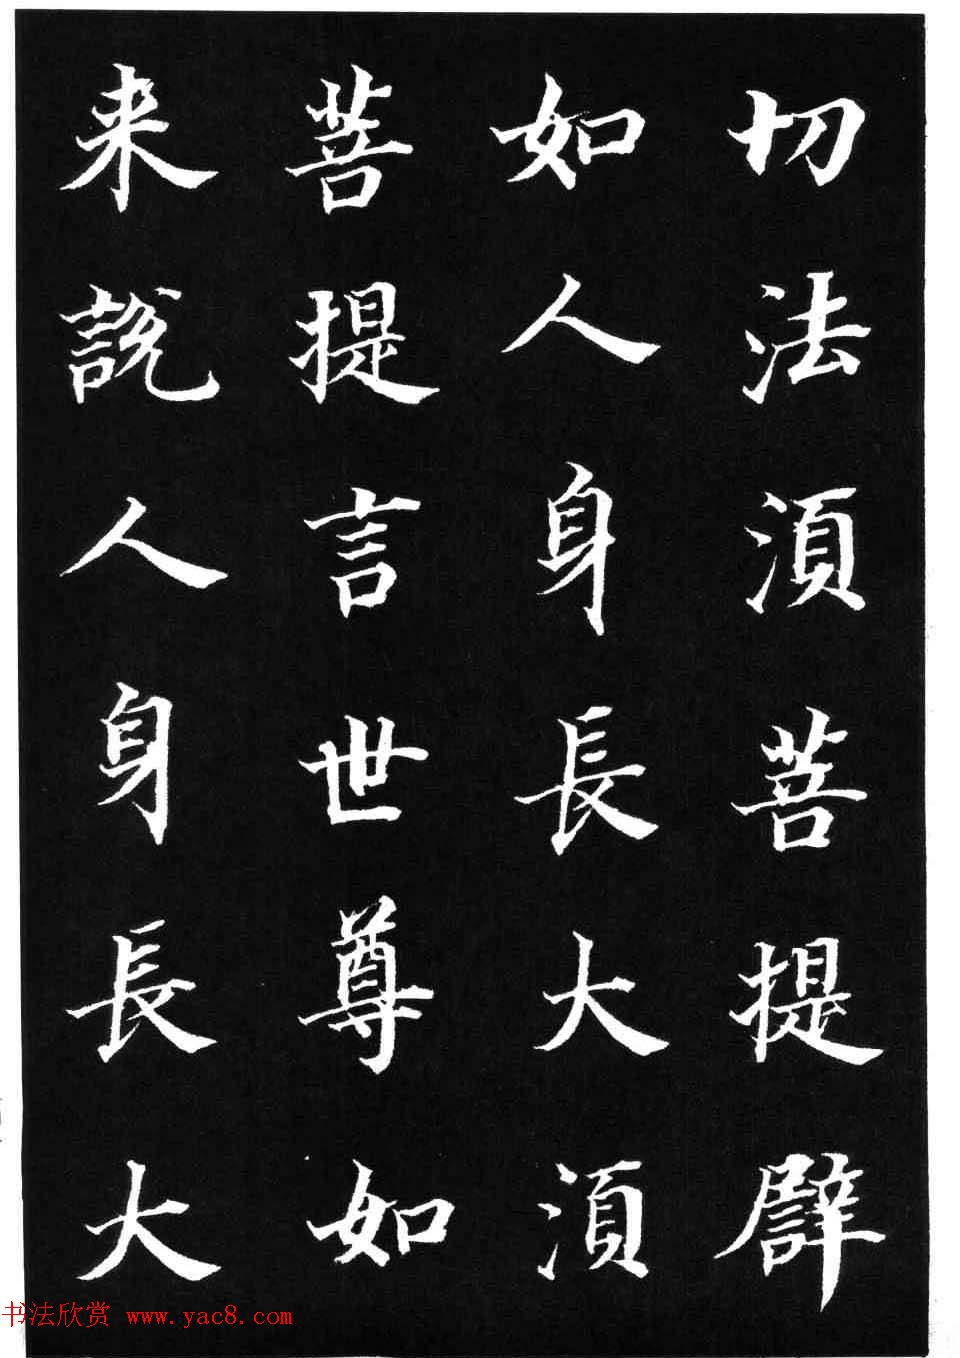 切法湏菩提譬
如人身長大湏
菩提言世尊如
来說人身長大
书法欣赏 www.yac8.com